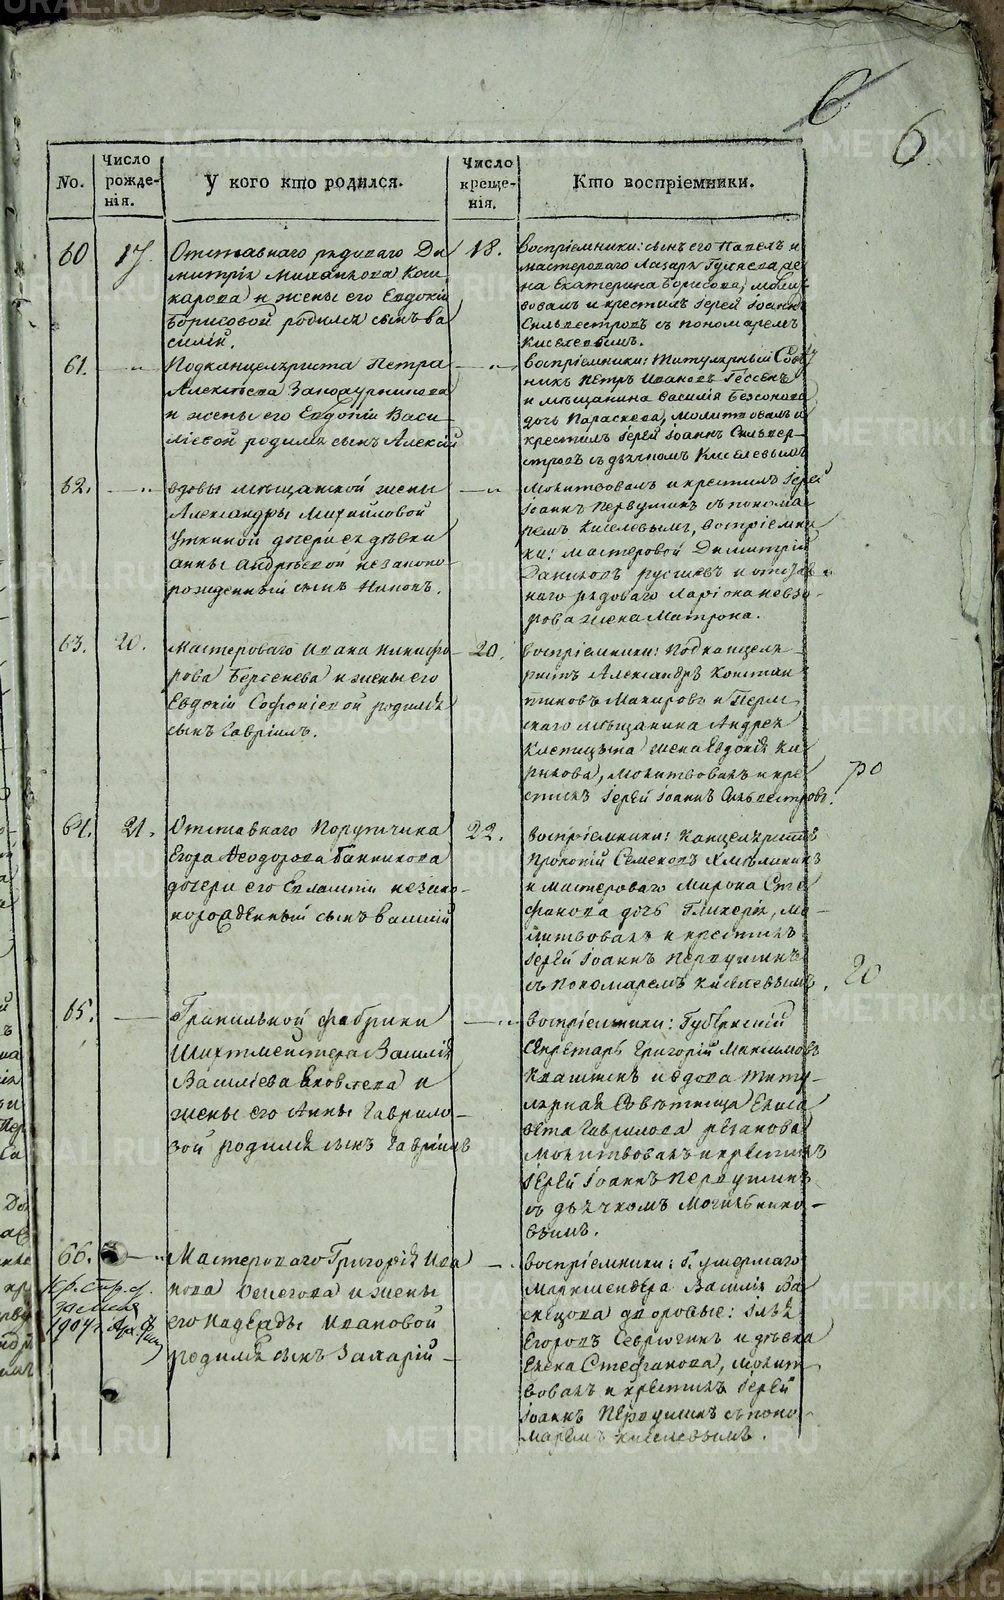 6
6
No.
Число рожде-нія.
У кого кто родился.
Число креще-нія.
Кто воспріемники.
60
17.
Отставнаго рядоваго Ди
митрія Михайлова Кош
карова и жены его Евдокіи
Борисовой родился сынъ Ва
силій.
18.
Воспріемники: сынъ его Павелъ и
мастероваго Лазаря Гуляева же
на Екатерина Борисова, молит
вовалъ и крестилъ Іерей Іоаннъ
Сильвестровъ съ пономаремъ
Киселевымъ.
61.
Подканцеляриста Петра
Алексѣева
и жены его Евдокіи Васи
ліевой родился сынъ Алексій
Воспріемники: Титулярный Совѣт
никъ Петръ Ивановъ Гессенъ
и мѣщанина Василія Безсонова
дочь Параскева, молитвовалъ и
крестилъ Іерей Іоаннъ Сильвес-
тровъ съ дьячкомъ Киселевымъ
62.
вдовы мѣщанской жены
Александры Михайловой
Уткиной дочери ея дѣвки
Анны Андреевой незаконо-
рожденный сынъ Никонъ.
Молитвовалъ и крестилъ Іерей
Іоаннъ Первушинъ съ понома
ремъ Киселевымъ, воспріемни
ки: мастеровой Димитрій
Даниловъ и отстав
наго рядоваго Ларіона Невзо-
рова жена Матрона.
63.
20.
Мастероваго Ивана Никифо-
рова Берсенева и жены его
Евдокіи Софоніевой родился
сынъ Гавріилъ.
20.
воспріемники: Подканцеля-
ристъ Александръ Констан
тиновъ Макаровъ и Перм
скаго мѣщанина Андрея
жена Евдокія Ки
рилова, Молитвовалъ и кре
стилъ Іерей Іоаннъ Сильвестровъ.
64.
21.
Отставнаго Порутчика
Егора Ѳеодорова Банникова
дочери его Евлампіи незако-
норожденный сынъ Василій
22.
воспріемники: Канцеляристъ
Прокопій Семеновъ Хмѣлининъ
и мастероваго Мирона Сте
фанова дочь Гликерія, Мо-
литвовалъ и крестилъ
Іерей Іоаннъ Первушинъ
съ Пономаремъ Киселевымъ.
20
65.
Гранильной фабрики
Шихтмейстера Василія
Васильева Яковлева и
жены его Анны Гаврило-
вой родился сынъ Гавріилъ
воспріемники: Губернскій
Секретарь Григорій Максимовъ
Квашнинъ и вдова Титу-
лярная Совѣтница Елиса
вета Гаврилова Рязанова
Молитвовалъ и крестилъ
Іерей Іоаннъ Первушинъ
съ дьячкомъ Могильнико-
вымъ.
66.
Мастероваго Григорія Ива
нова и жены
его Надежды Ивановой
родился сынъ Захарій
воспріемники: Г. умершаго
Маркшейдера Василія Ва
дворовые: Илья
Егоровъ Севрюгинъ и дѣвка
Елена Стефанова, молит
вовалъ и крестилъ Іерей
Іоаннъ Первушинъ съ поно-
маремъ Киселевымъ.
METRIKI.GASO-URAL.RU